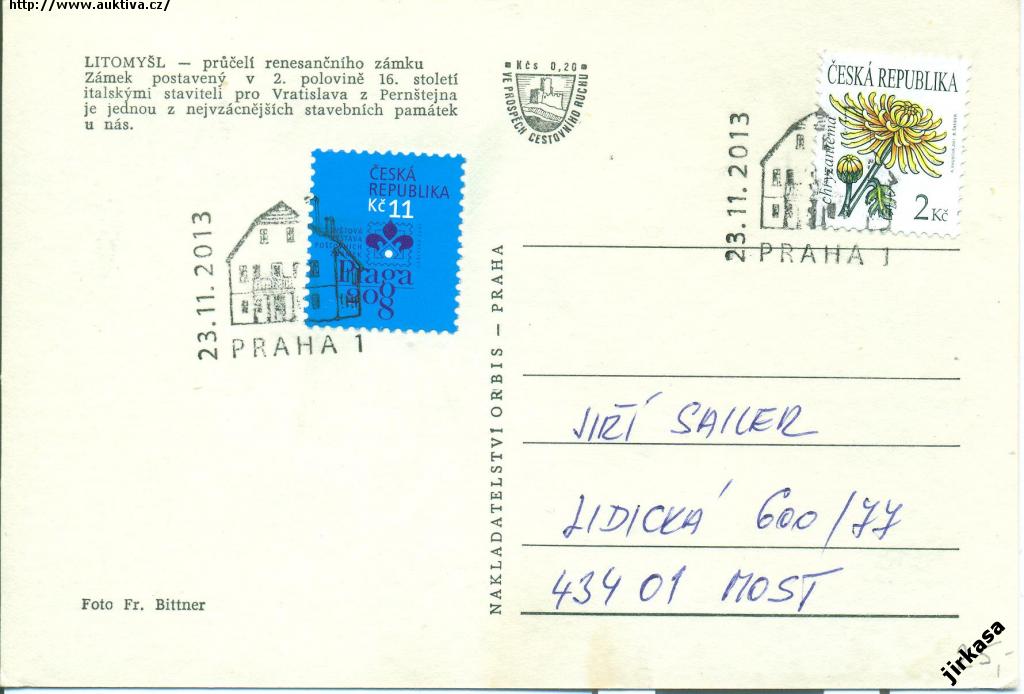 http://www.auktiva.cz/
LITOMYŠL — průčelí renesančního zámku
Zámek postavený v 2. polovině 16. století
italskými staviteli pro Vratislava z Pernštejna
je jednou z nejvzácnějších stavebních památek
u nás.
Kčs 0,20
VE PROSPĚCH CESTOVNÍHO RUCHU
ČESKÁ REPUBLIKA
chryzantéma
2 Kč
23.11.2013
PRAHA 1
ČESKÁ
REPUBLIKA
Kč 11
VÝSTAVA
POŠTOVNÍCH
Praga
2008
23.11.2013
PRAHA 1
NAKLADATELSTVÍ ORBIS — PRAHA
JIŘÍ SAILER
LIDICKÁ 600/77
434 01 MOST
Foto Fr. Bittner
jirkasa